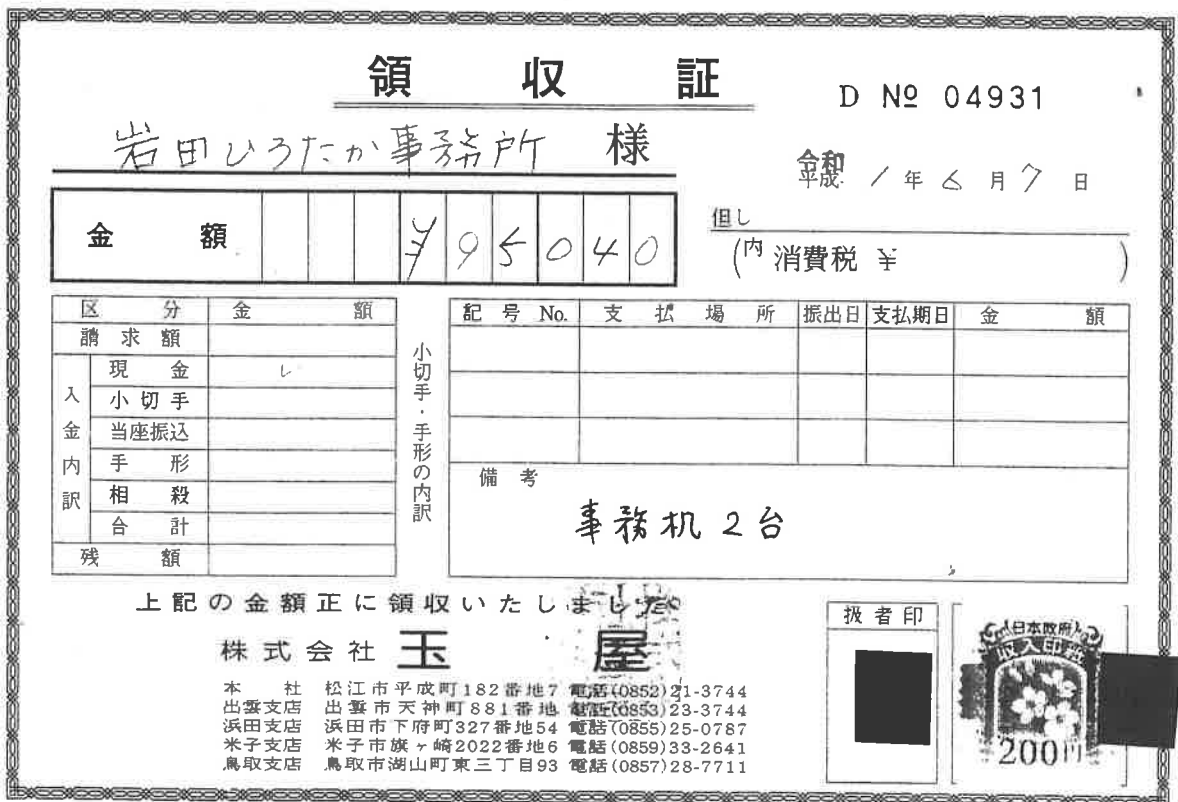 領収証
D № 04931
岩田ひろたか事務所 様
令和
平成 1年6月7日
金額 ¥95040
但し
(内 消費税 ¥ )
区分 金額
請求額
入金内訳
現金 レ
小切手
当座振込
手形
相殺
合計
残額
小切手・手形の内訳
記号No. 支払場所 振出日 支払期日 金額
備考
事務机2台
上記の金額正に領収いたしました
株式会社 玉屋
本社 松江市平成町182番地7 電話(0852)21-3744
出雲支店 出雲市天神町881番地 電話(0853)23-3744
浜田支店 浜田市下府町327番地54 電話(0855)25-0787
米子支店 米子市旗ヶ崎2022番地6 電話(0859)33-2641
鳥取支店 鳥取市湖山町東三丁目93 電話(0857)28-7711
扱者印
日本政府
収入印紙
200円